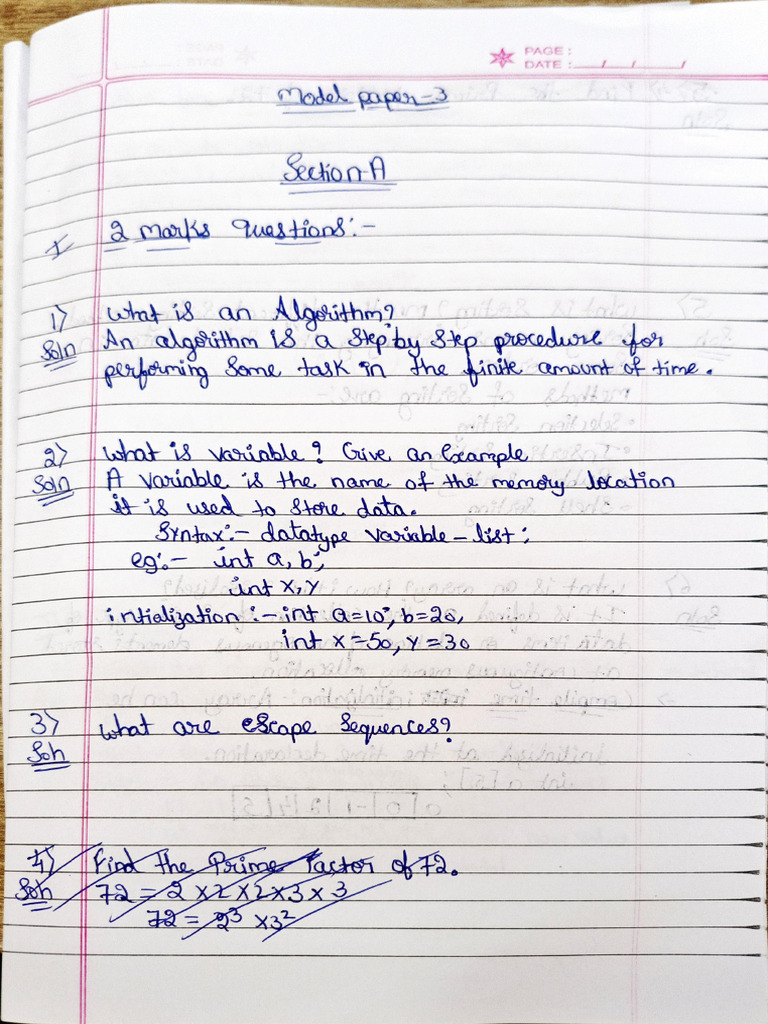 PAGE :
DATE : / / /
Model paper-3
Section-A
I 2 Marks Questions:-
1) What is an Algorithm?
Soln An algorithm is a step by step procedure for
performing some task in the finite amount of time.
2) What is variable? Give an Example
Soln A variable is the name of the memory location
it is used to store data.
Syntax:- datatype variable-list;
eg:- int a, b;
int x, y
intialization :- int a=10, b=20,
int x=50, y=30
3) What are escape Sequences?
Soln
4) Find the Prime Factor of 72.
Soln 72 = 2 x 2 x 2 x 3 x 3
72 = 2³ x 3²